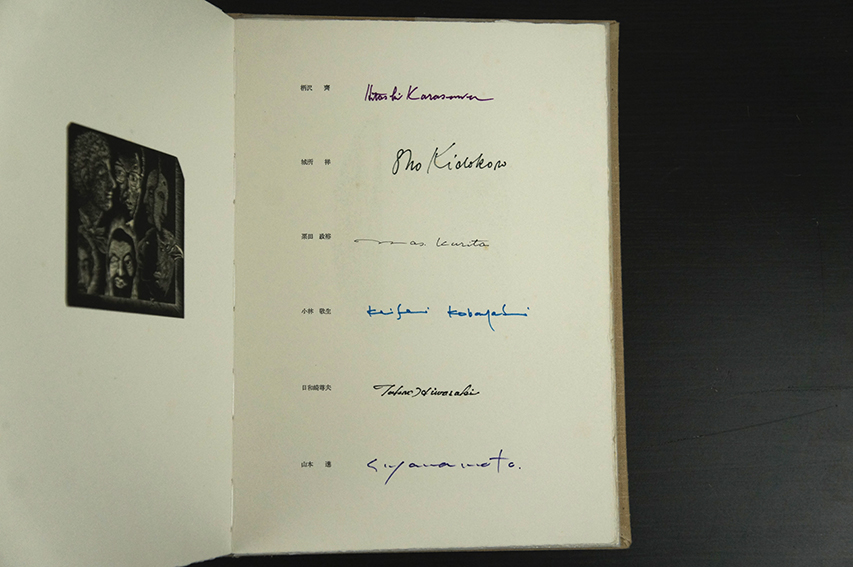 柄沢 齊 Hitoshi Karasawa
城所 祥 Sho Kidokoro
栗田 政裕 mas Kurita
小林 敬生 Keisei Kobayashi
日和崎尊夫 Takao Hiwasaki
山本 進 S. Yamamoto.